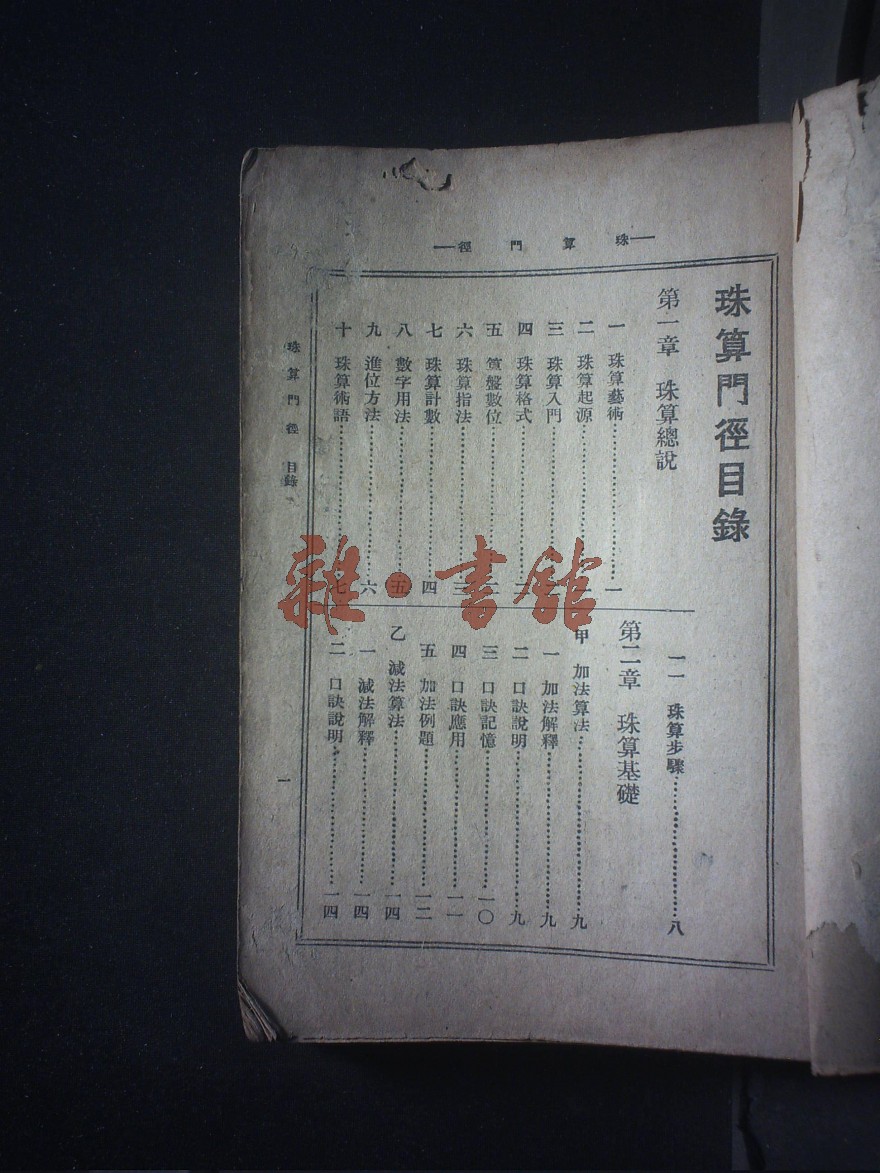 珠算門徑
珠算門徑目錄
第一章 珠算總說
一 珠算藝術……一
二 珠算起源……
三 珠算入門……
四 珠算格式……二
五 算盤數位……二
六 珠算指法……三
七 珠算計數……四
八 數字用法……五
九 進位方法……六
十 珠算術語……七
一一 珠算步驟……八
第二章 珠算基礎
甲 加法算法……九
一 加法解釋……九
二 口訣說明……九
三 口訣記憶……一〇
四 口訣應用……一一
五 加法例題……一二
乙 減法算法……一四
一 減法解釋……一四
二 口訣說明……一四
珠算門徑 目錄
一
雜·書館